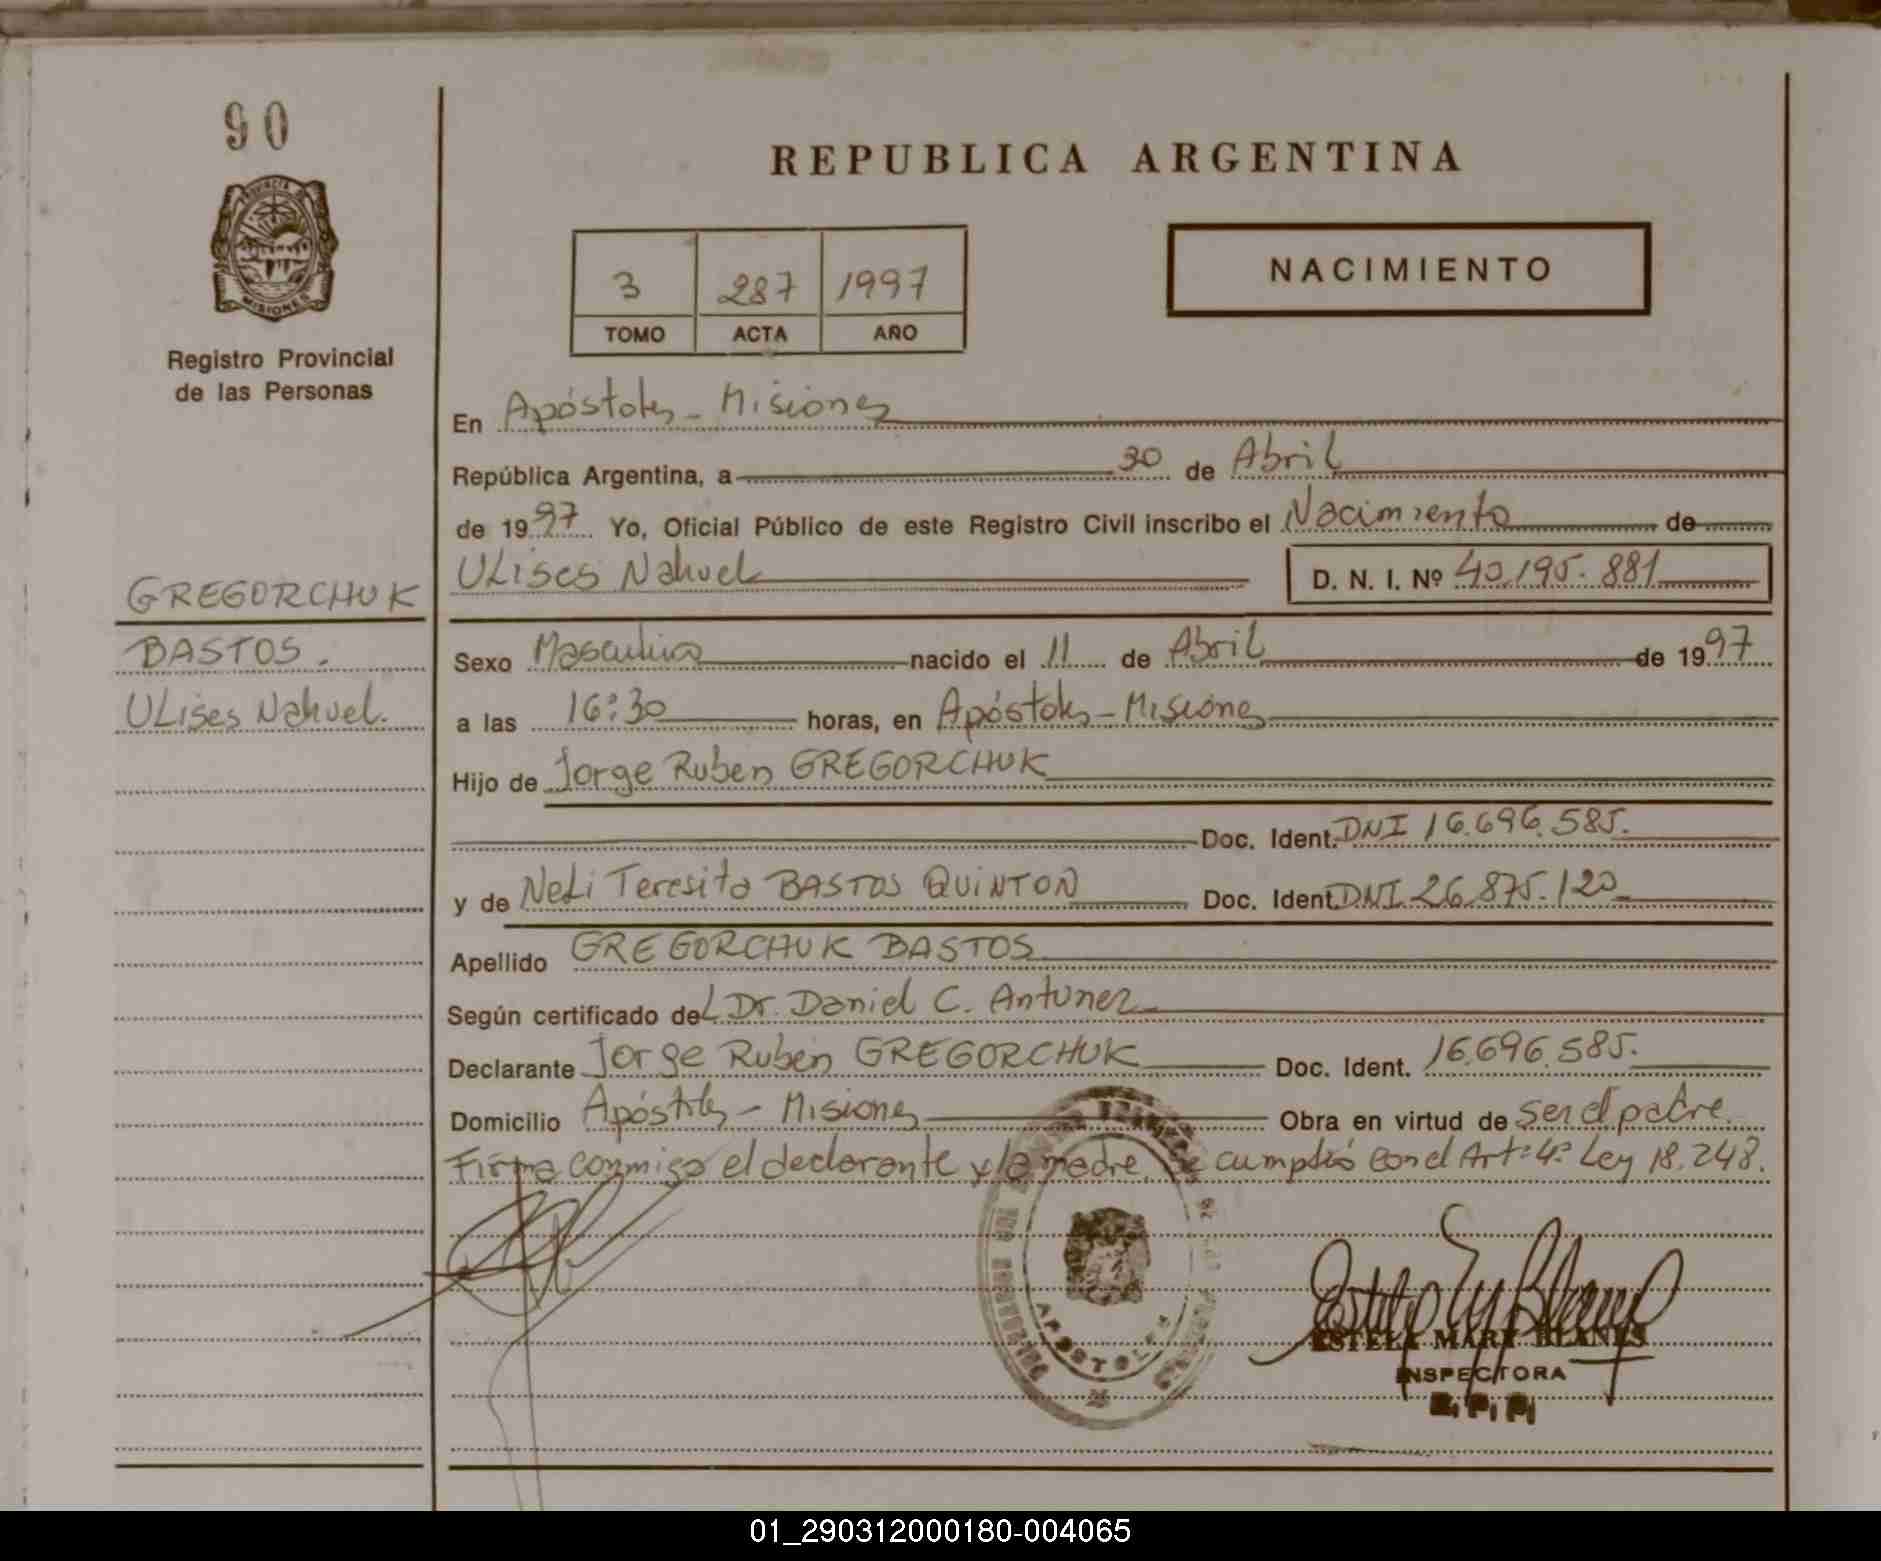 90
PROVINCIA DE
MISIONES
Registro Provincial
de las Personas
GREGORCHUK
BASTOS.
ULises Nahuel.
REPUBLICA ARGENTINA
3 287 1997
TOMO ACTA AÑO
NACIMIENTO
En Apóstoles - Misiones
República Argentina, a 30 de Abril
de 1997 Yo, Oficial Público de este Registro Civil inscribo el Nacimiento de
ULises Nahuel D. N. I. Nº 40.195.881
Sexo Masculino nacido el 11 de Abril de 1997
a las 16:30 horas, en Apóstoles - Misiones
Hijo de Jorge Ruben GREGORCHUK
Doc. Ident. DNI 16.696.585.
y de NeLi Teresita BASTOS QUiNTON Doc. Ident. DNI 26.875.120
Apellido GREGORCHUK BASTOS
Según certificado del Dr. Daniel C. Antunez
Declarante Jorge Ruben GREGORCHUK Doc. Ident. 16.696.585.
Domicilio Apóstoles - Misiones Obra en virtud de ser el padre.
Firma conmigo el declarante y la madre. Se cumplió con el Art: 4º Ley 18.248.
APOSTOLES
ESTELA MARY BLANES
INSPECTORA
R. P. P.
01_290312000180-004065